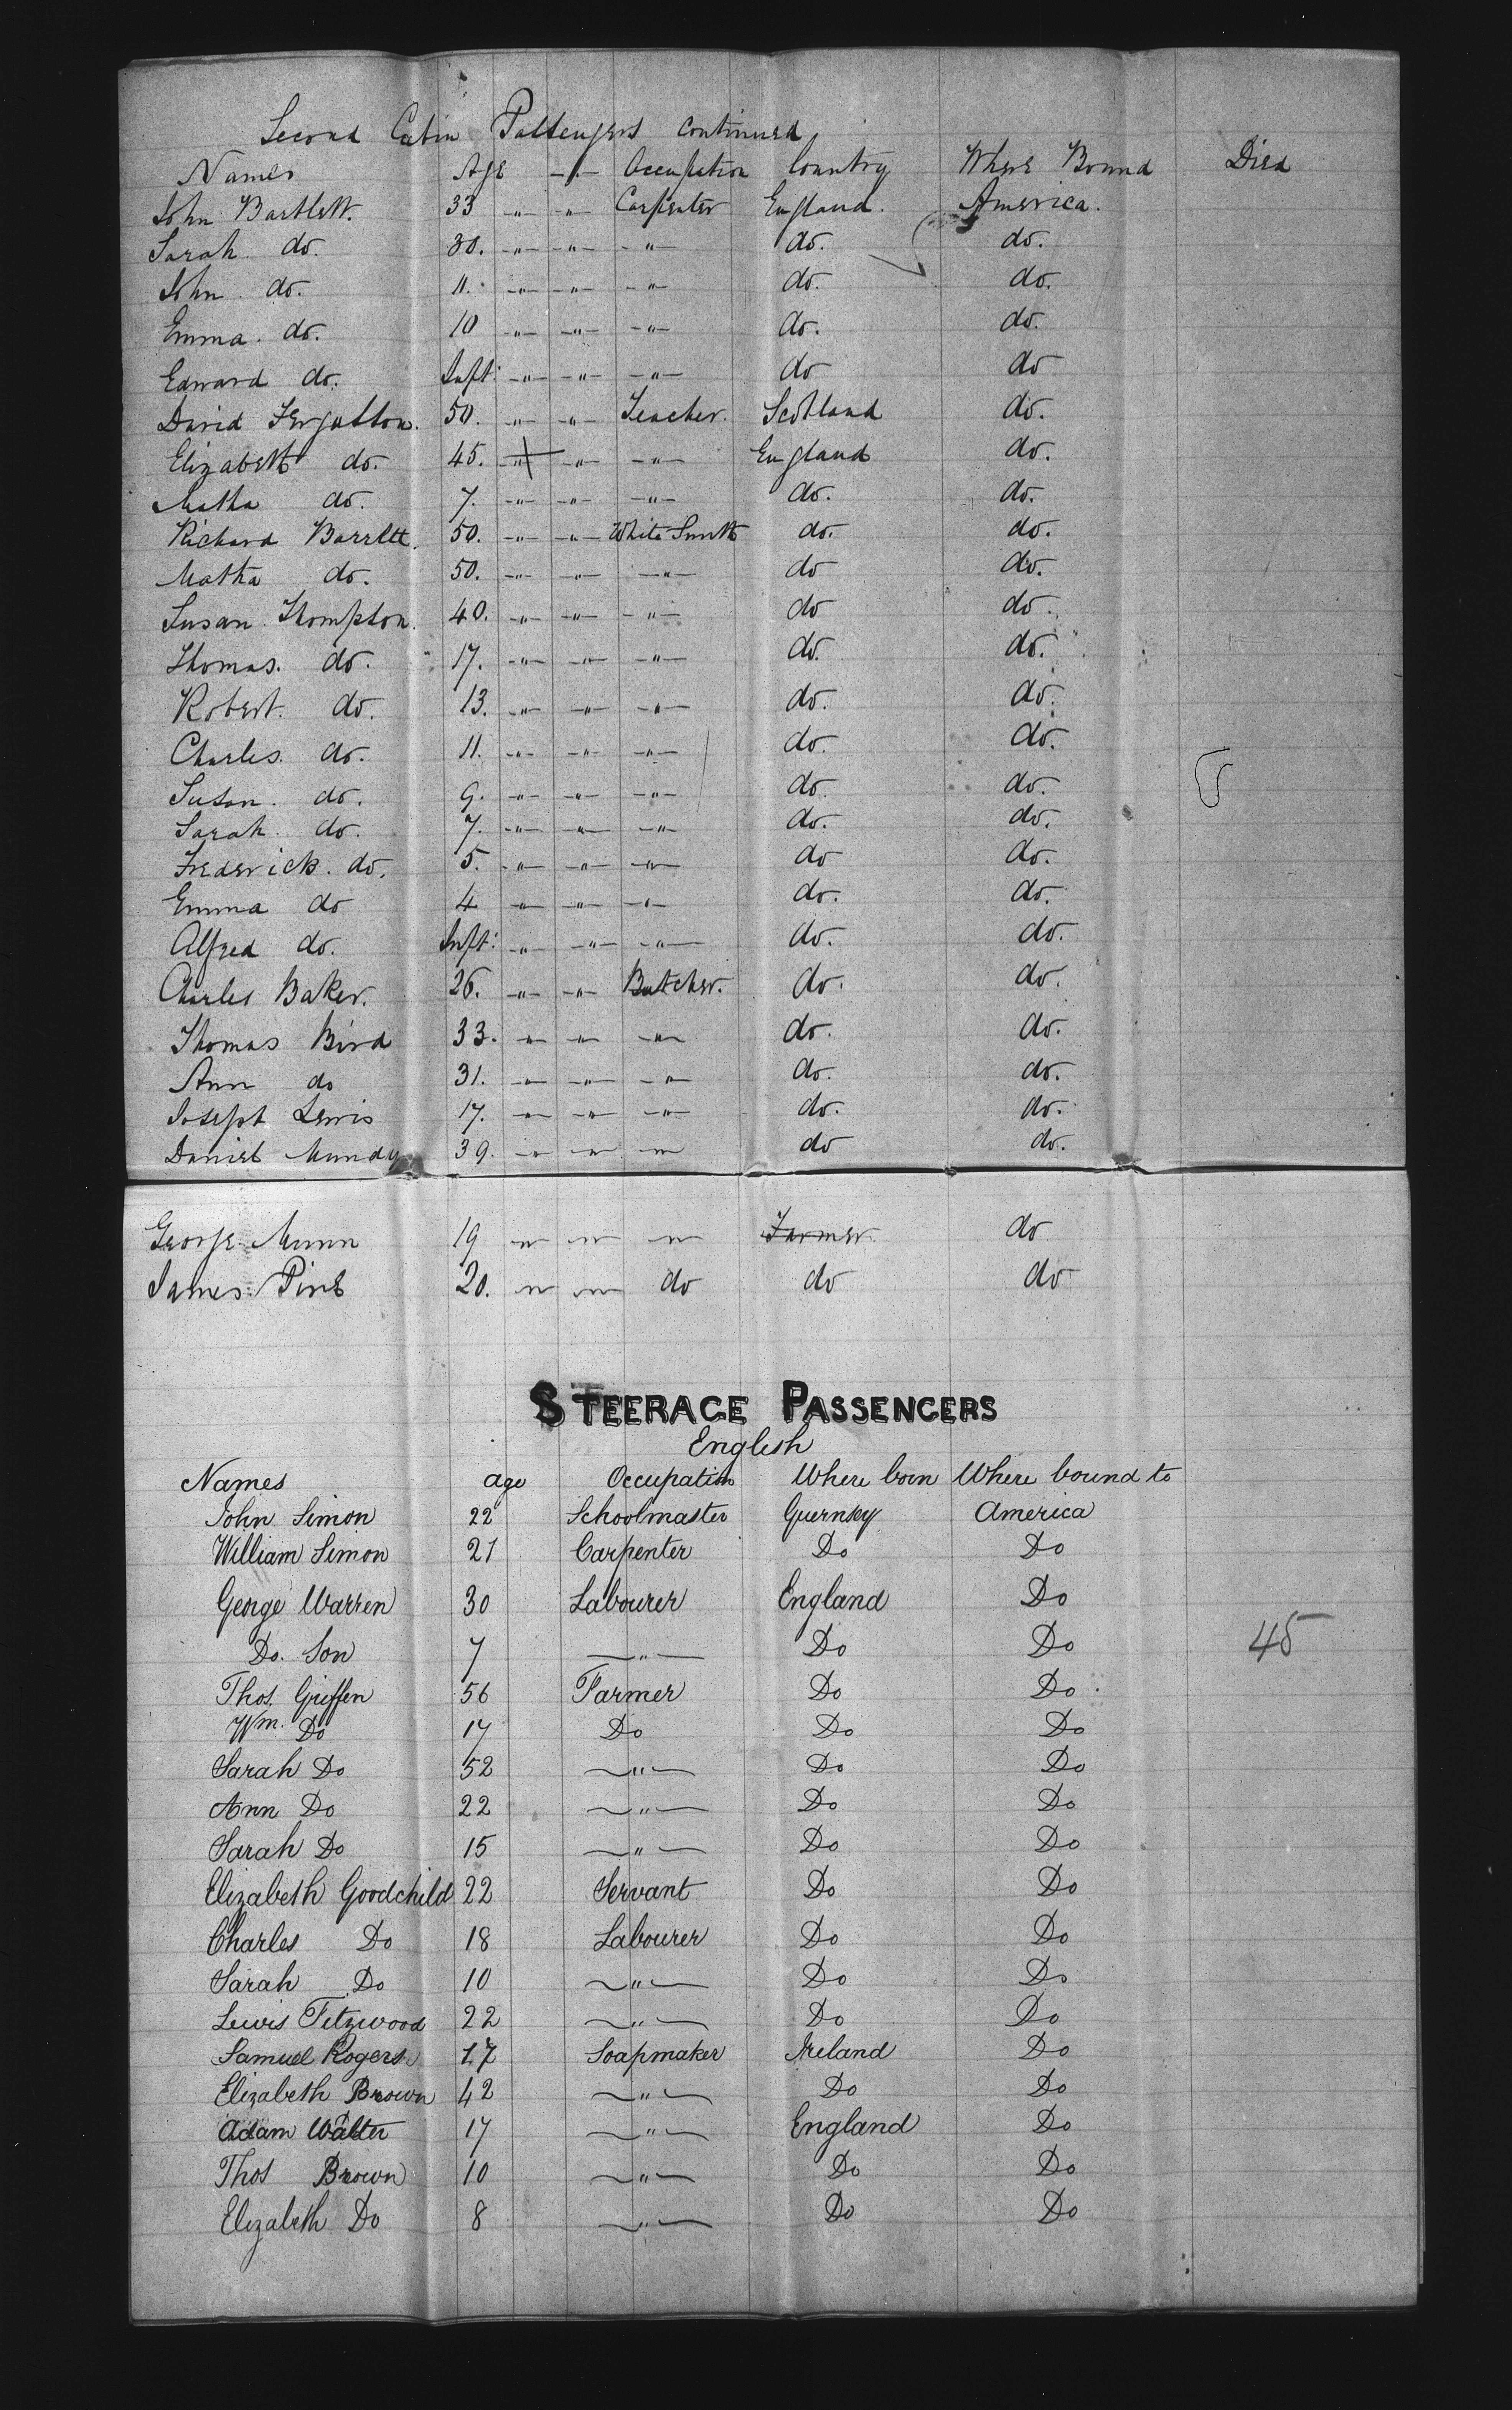 Second Cabin Passengers continued
Names Age -"- Occupation Country Where Bound Died
John Bartlett. 33 -"- -"- Carpenter England. America.
Sarah do. 30. -"- -"- -"- do. do.
John do. 11. -"- -"- -"- do. do.
Emma. do. 10 -"- -"- -"- do. do.
Edward do. Inft: -"- -"- -"- do do
David Fergusson. 50. -"- -"- Teacher. Scotland do.
Elizabeth do. 45. -"- -"- -"- England do.
Matha do. 7. -"- -"- -"- do. do.
Richard Barrltt. 50. -"- -"- White Smith do. do.
Matha do. 50. -"- -"- -"- do do.
Susan Thompson. 40. -"- -"- -"- do do.
Thomas. do. 17. -"- -"- -"- do. do.
Robert. do. 13. -"- -"- -"- do. do.
Charles. do. 11. -"- -"- -"- do. do.
Susan. do. 9. -"- -"- -"- do. do.
Sarah. do. 7. -"- -"- -"- do. do.
Frederick. do. 5. -"- -"- -"- do do.
Emma do 4 -"- -"- -"- do. do.
Alfred do. Inft: -"- -"- -"- do. do.
Charles Baker. 26. -"- -"- Butcher. do. do.
Thomas Bird 33. -"- -"- -"- do. do.
Ann do 31. -"- -"- -"- do. do.
Joseph Lewis 17. -"- -"- -"- do. do.
Daniel Mundy 39. -"- -"- -"- do do.
George Munn 19 -"- -"- -"- Farmer do
James Pine 20. -"- -"- do do do
STEERAGE PASSENGERS
English
Names age Occupation Where born Where bound to
John Simon 22 Schoolmaster Guernsey America
William Simon 21 Carpenter Do Do
George Warren 30 Labourer England Do
Do. Son 7 -"- Do Do 45
Thos. Griffen 56 Farmer Do Do
Wm. Do 17 Do Do Do
Sarah Do 52 -"- Do Do
Ann Do 22 -"- Do Do
Sarah Do 15 -"- Do Do
Elizabeth Goodchild 22 Servant Do Do
Charles Do 18 Labourer Do Do
Sarah Do 10 -"- Do Do
Lewis Fitzwood 22 -"- Do Do
Samuel Rogers 17 Soapmaker Ireland Do
Elizabeth Brown 42 -"- Do Do
Adam Walter 17 -"- England Do
Thos Brown 10 -"- Do Do
Elizabeth Do 8 -"- Do Do